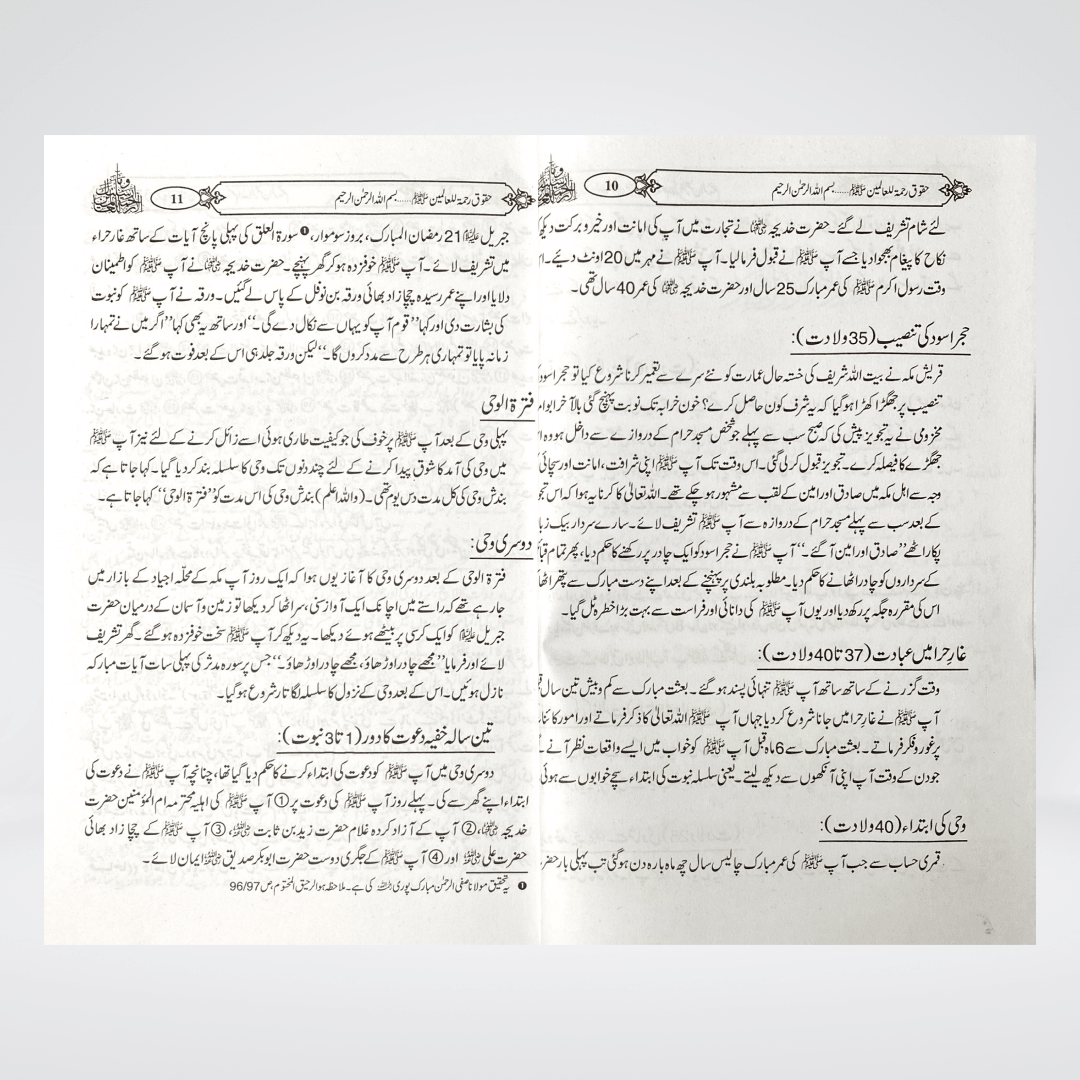 10
حقوق رحمۃ للعالمین ﷺ......بسم اللہ الرحمٰن الرحیم
لئے شام تشریف لے گئے۔ حضرت خدیجہ ؓ نے تجارت میں آپ کی امانت اور خیر و برکت
نکاح کا پیغام بھجوا دیا جسے آپ ﷺ نے قبول فرما لیا۔ آپ ﷺ نے مہر میں 20 اونٹ دیئے۔
وقت رسول اکرم ﷺ کی عمر مبارک 25 سال اور حضرت خدیجہ ؓ کی عمر 40 سال تھی۔
حجر اسود کی تنصیب (35 ولادت):
قریش مکہ نے بیت اللہ شریف کی خستہ حال عمارت کو نئے سرے سے تعمیر کرنا شروع کیا تو حجر اسود
تنصیب پر جھگڑا کھڑا ہو گیا کہ یہ شرف کون حاصل کرے؟ خون خرابہ تک نوبت پہنچ گئی بالآخر
مخزومی نے یہ تجویز پیش کی کہ صبح سب سے پہلے جو شخص مسجد حرام کے دروازے سے داخل ہو وہ
جھگڑے کا فیصلہ کرے۔ تجویز قبول کر لی گئی۔ اس وقت تک آپ ﷺ اپنی شرافت، امانت اور سچائی
وجہ سے اہل مکہ میں صادق اور امین کے لقب سے مشہور ہو چکے تھے۔ اللہ تعالیٰ کا کرنا یہ ہوا کہ اس
کے بعد سب سے پہلے مسجد حرام کے دروازہ سے آپ ﷺ تشریف لائے۔ سارے سردار بیک
پکار اٹھے ’’صادق اور امین آ گئے۔‘‘ آپ ﷺ نے حجر اسود کو ایک چادر پر رکھنے کا حکم دیا، پھر تمام
کے سرداروں کو چادر اٹھانے کا حکم دیا۔ مطلوبہ بلندی پر پہنچنے کے بعد اپنے دست مبارک سے پتھر
اس کی مقررہ جگہ پر رکھ دیا اور یوں آپ ﷺ کی دانائی اور فراست سے بہت بڑا خطرہ ٹل گیا۔
غارِ حرا میں عبادت (37 تا 40 ولادت):
وقت گزرنے کے ساتھ ساتھ آپ ﷺ تنہائی پسند ہو گئے۔ بعثت مبارک سے کم و بیش تین سال
آپ ﷺ نے غارِ حرا میں جانا شروع کر دیا جہاں آپ ﷺ اللہ تعالیٰ کا ذکر فرماتے اور امور
پر غور و فکر فرماتے۔ بعثت مبارک سے 6 ماہ قبل آپ ﷺ کو خواب میں ایسے واقعات نظر آنے
جو دن کے وقت آپ اپنی آنکھوں سے دیکھ لیتے۔ یعنی سلسلہ نبوت کی ابتداء سچے خوابوں سے ہوئی
وحی کی ابتداء (40 ولادت):
قمری حساب سے جب آپ ﷺ کی عمر مبارک چالیس سال چھ ماہ بارہ دن ہو گئی تب پہلی بار
11
حقوق رحمۃ للعالمین ﷺ......بسم اللہ الرحمٰن الرحیم
جبریل علیہ السلام 21 رمضان المبارک، بروز سوموار،❶ سورۃ العلق کی پہلی پانچ آیات کے ساتھ غارِ حراء
میں تشریف لائے۔ آپ ﷺ خوفزدہ ہو کر گھر پہنچے۔ حضرت خدیجہ ؓ نے آپ ﷺ کو اطمینان
دلایا اور اپنے عمر رسیدہ چچا زاد بھائی ورقہ بن نوفل کے پاس لے گئیں۔ ورقہ نے آپ ﷺ کو نبوت
کی بشارت دی اور کہا ’’قوم آپ کو یہاں سے نکال دے گی۔‘‘ اور ساتھ یہ بھی کہا ’’اگر میں نے تمہارا
زمانہ پایا تو تمہاری ہر طرح سے مدد کروں گا۔‘‘ لیکن ورقہ جلد ہی اس کے بعد فوت ہو گئے۔
فترۃ الوحی
پہلی وحی کے بعد آپ ﷺ پر خوف کی جو کیفیت طاری ہوئی اسے زائل کرنے کے لئے نیز آپ ﷺ
میں وحی کی آمد کا شوق پیدا کرنے کے لئے چند دنوں تک وحی کا سلسلہ بند کر دیا گیا۔ کہا جاتا ہے کہ
بندش وحی کی کل مدت دس یوم تھی۔ (واللہ اعلم) بندش وحی کی اس مدت کو ’’فترۃ الوحی‘‘ کہا جاتا ہے۔
دوسری وحی:
فترۃ الوحی کے بعد دوسری وحی کا آغاز یوں ہوا کہ ایک روز آپ مکہ کے محلّہ اجیاد کے بازار میں
جا رہے تھے کہ راستے میں اچانک ایک آواز سنی، سر اٹھا کر دیکھا تو زمین و آسمان کے درمیان حضرت
جبریل علیہ السلام کو ایک کرسی پر بیٹھے ہوئے دیکھا۔ یہ دیکھ کر آپ ﷺ سخت خوفزدہ ہو گئے۔ گھر تشریف
لائے اور فرمایا ’’مجھے چادر اوڑھاؤ، مجھے چادر اوڑھاؤ۔‘‘ جس پر سورہ مدثر کی پہلی سات آیات مبارکہ
نازل ہوئیں۔ اس کے بعد وحی کے نزول کا سلسلہ لگا تار شروع ہو گیا۔
تین سالہ خفیہ دعوت کا دور (1 تا 3 نبوت):
دوسری وحی میں آپ ﷺ کو دعوت کی ابتداء کرنے کا حکم دیا گیا تھا، چنانچہ آپ ﷺ نے دعوت کی
ابتداء اپنے گھر سے کی۔ پہلے روز آپ ﷺ کی دعوت پر ① آپ ﷺ کی اہلیہ محترمہ ام المؤمنین حضرت
خدیجہ ؓ، ② آپ کے آزاد کردہ غلام حضرت زید بن ثابت ؓ، ③ آپ ﷺ کے چچا زاد بھائی
حضرت علی ؓ اور ④ آپ ﷺ کے جگری دوست حضرت ابوبکر صدیق ؓ ایمان لائے۔
❶ یہ تحقیق مولانا صفی الرحمٰن مبارک پوری رحمہ اللہ کی ہے۔ ملاحظہ ہو الرحیق المختوم ص 96/97